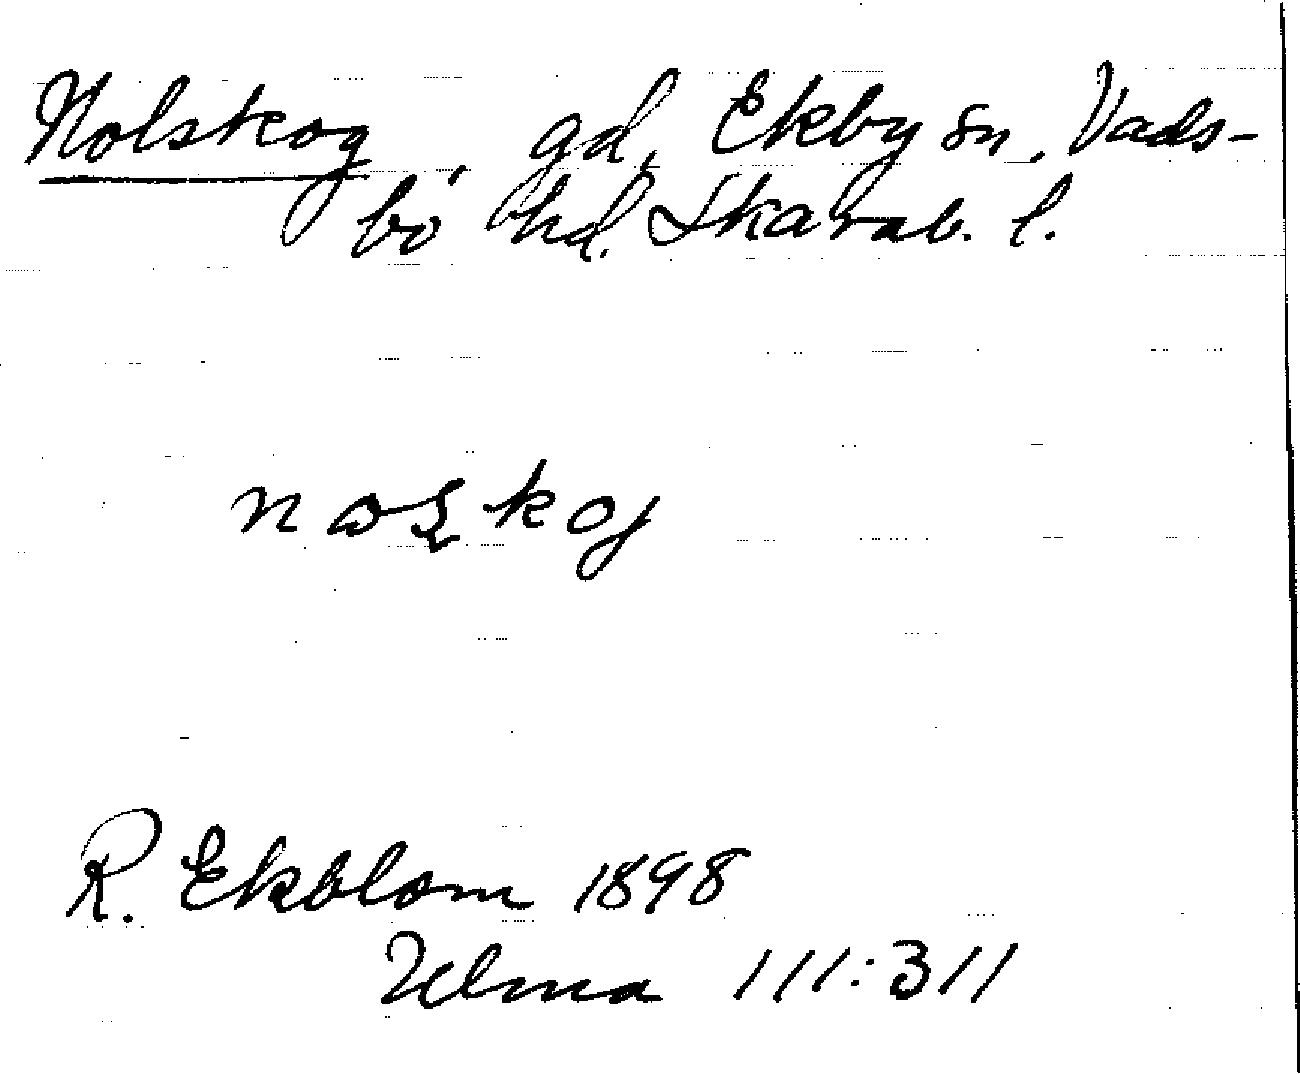 Nolskog, gd, Ekby sn, Vads-
bo hd. Skarab. l.
R. Ekblom 1898
Ulma 111:311